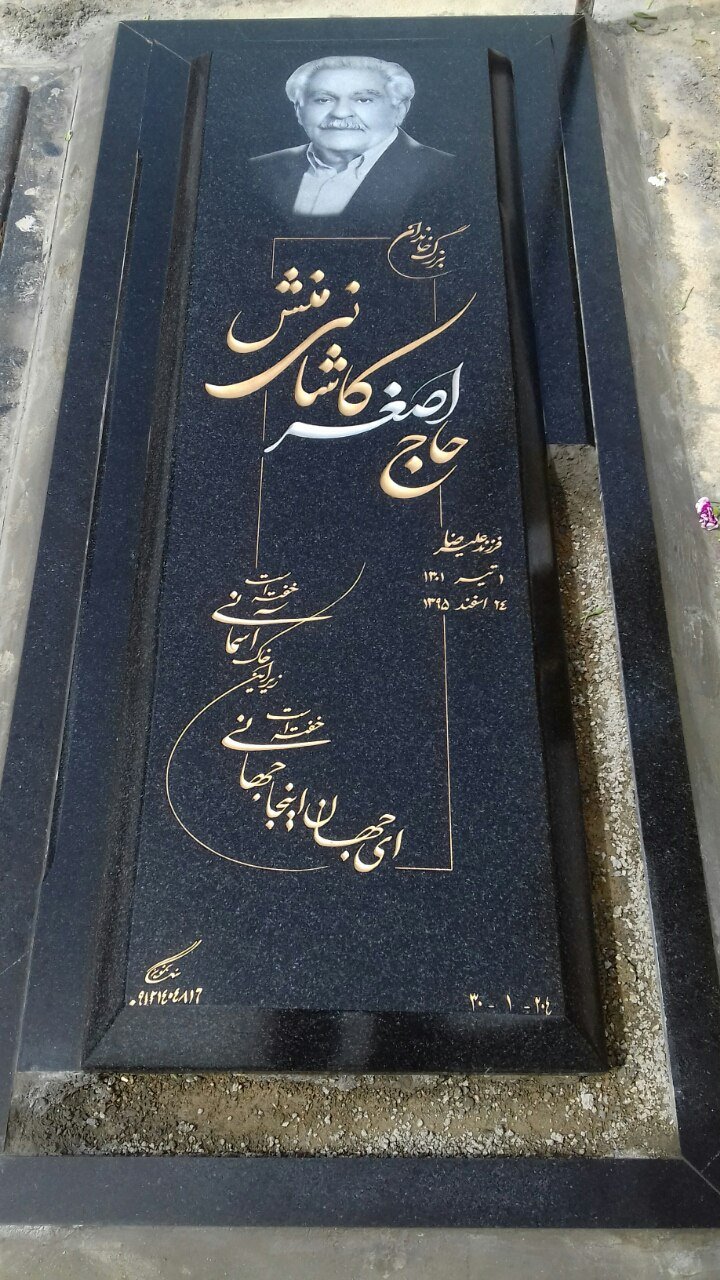 بزرگ خاندان
حاج اصغر کاشانی منش
فرزند علیرضا
۱ تیر ۱۳۰۱
۲۴ اسفند ۱۳۹۵
ای جهان اینجا جهانی
خفته است
زیر این خاک آسمانی
خفته است
۰۹۱۲۱۴۰۴۸۱۶
۲۰۴ - ۱ - ۳۰